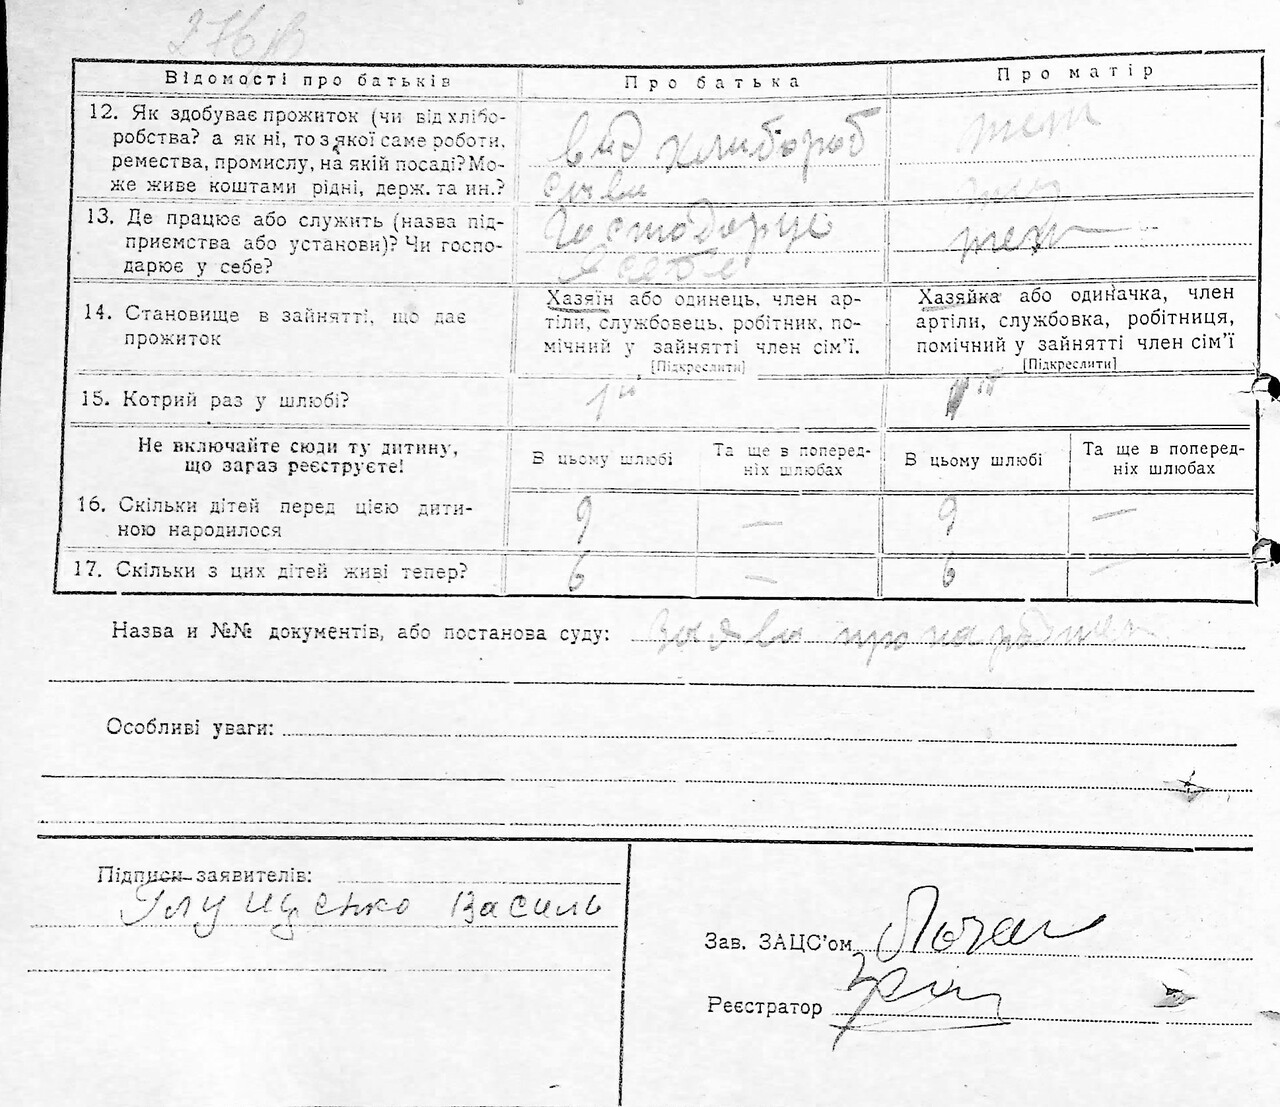 Відомості про батьків
Про батька
Про матір
12. Як здобуває прожиток (чи від хлібо-
робства? а як ні, то з якої саме роботи,
ремества, промислу, на якій посаді? Мо-
же живе коштами рідні, держ. та ин.?
вид хлибороб
теж
13. Де працює або служить (назва під-
приємства або установи)? Чи госпо-
дарює у себе?
Господорує
в себе
теж
14. Становище в зайнятті, що дає
прожиток
Хазяїн або одинець, член ар-
тіли, службовець, робітник, по-
мічний у зайнятті член сім'ї.
[Підкреслити]
Хазяйка або одиначка, член
артіли, службовка, робітниця,
помічний у зайнятті член сім'ї
[Підкреслити]
15. Котрий раз у шлюбі?
1й
Не включайте сюди ту дитину,
що зараз реєструєте!
В цьому шлюбі
Та ще в поперед-
ніх шлюбах
В цьому шлюбі
Та ще в поперед-
ніх шлюбах
16. Скільки дітей перед цією дити-
ною народилося
9 — 9 —
17. Скільки з цих дітей живі тепер?
6 — 6 —
Назва и №№ документів, або постанова суду: Заява про народжен
Особливі уваги:
Підписи заявителів:
Глущенко Василь
Зав. ЗАЦС'ом
Реєстратор